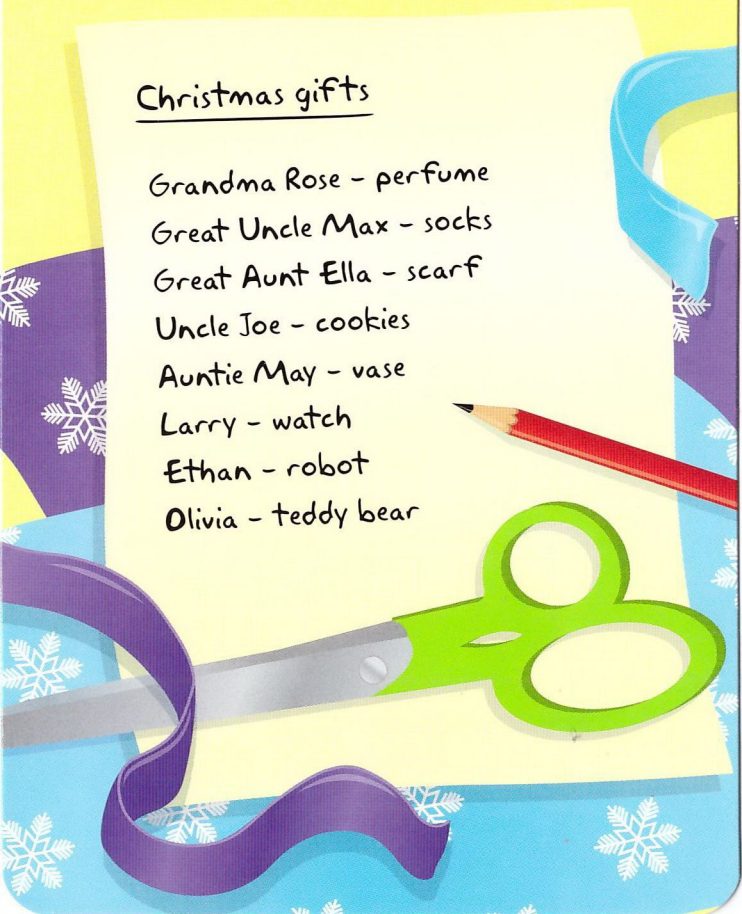 Christmas gifts
Grandma Rose - perfume
Great Uncle Max - socks
Great Aunt Ella - scarf
Uncle Joe - cookies
Auntie May - vase
Larry - watch
Ethan - robot
Olivia - teddy bear